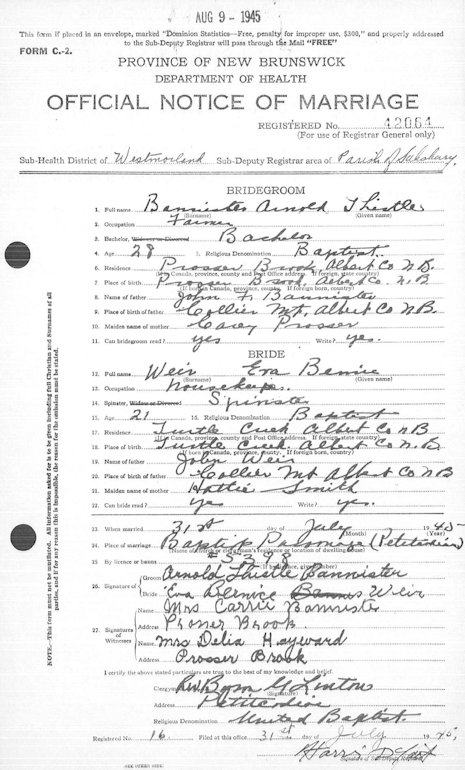 AUG 9 - 1945
This form if placed in an envelope, marked "Dominion Statistics—Free, penalty for improper use, $300," and properly addressed
to the Sub-Deputy Registrar will pass through the Mail "FREE"
FORM C.-2.
PROVINCE OF NEW BRUNSWICK
DEPARTMENT OF HEALTH
OFFICIAL NOTICE OF MARRIAGE
REGISTERED No. 42064
(For use of Registrar General only)
Sub-Health District of Westmorland Sub-Deputy Registrar area of Parish of Salisbury
BRIDEGROOM
1. Full name Bannister Arnold Thistle
(Surname) (Given name)
2. Occupation Farmer
3. Bachelor, Widower or Divorced Bachelor
4. Age 28 5. Religious Denomination Baptist
6. Residence Prosser Brook Albert Co N.B.
(If Canada, province, county and Post Office address. If foreign, state country)
7. Place of birth Prosser Brook, Albert Co. N.B
(If born Canada, province, county. If foreign born, country)
8. Name of father John F. Bannister
9. Place of birth of father Collier Mt, Albert Co N.B.
10. Maiden name of mother Casey Prosser
11. Can bridegroom read? yes Write? yes.
BRIDE
12. Full name Weir Eva Bernice
(Surname) (Given name)
13. Occupation Housekeeper.
14. Spinster, Widow or Divorced Spinster
15. Age 21 16. Religious Denomination Baptist
17. Residence Turtle Creek Albert Co NB
(If Canada, province, county and Post Office address. If foreign, state country)
18. Place of birth Turtle Creek Albert Co N.B.
(If born Canada, province, county. If foreign born, country)
19. Name of father John Weir
20. Place of birth of father Collier Mt Albert Co NB
21. Maiden name of mother Hattie Smith
22. Can bride read? yes Write? yes.
23. When married 31st day of July 1945
(Month) (Year)
24. Place of marriage Baptist Parsonage (Petitcodiac)
(Name of church or clergyman's residence or location of dwelling house)
25. By licence or banns #5398
(If by licence give number)
26. Signature of Groom Arnold Thistle Bannister
Bride Eva Bernice Weir
27. Signatures of Witnesses Name Mrs Carrie Bannister
Address Prosser Brook
Name Mrs Delia Hayward
Address Prosser Brook
I certify the above stated particulars are true to the best of my knowledge and belief.
Clergyman Rev. Byron G Linton
(Signature)
Address Petitcodiac
Religious Denomination United Baptist
Registered No. 16. Filed at this office 31st day of July 1945,
Signature of Sub-Deputy Registrar
(SEE OTHER SIDE)
NOTE.—All information asked for is to be given including full Christian and Surnames of all
parties, and if for any reason this is impossible, the reason for the omission must be stated.
This form must not be mutilated.